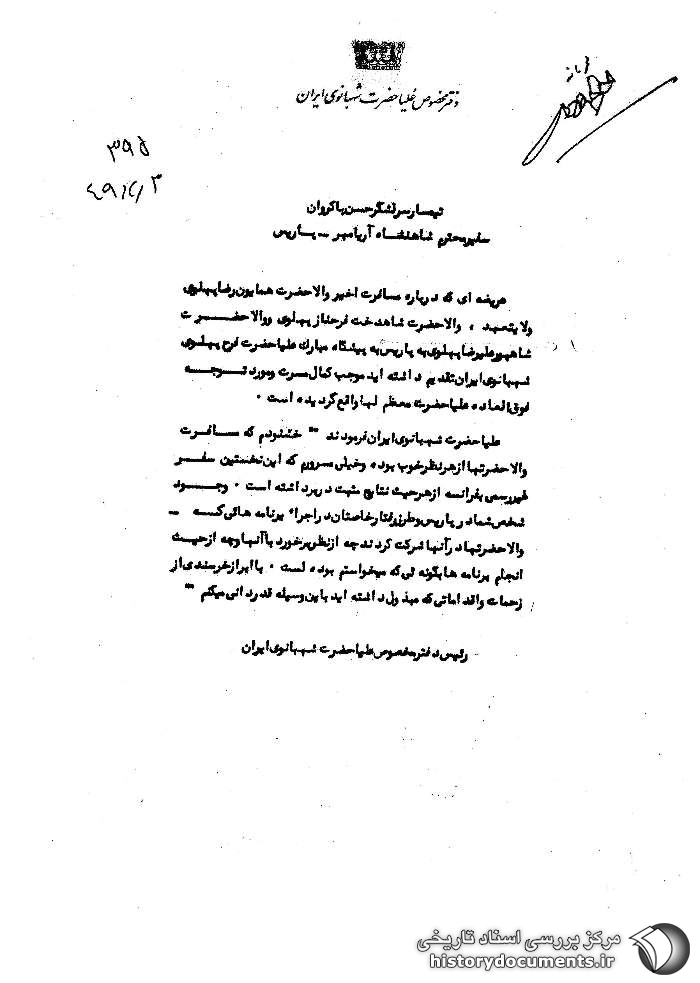 دفتر مخصوص علیاحضرت شهبانوی ایران
۳۹۵
۴۹/۲/۳
تیمسار سرلشگر حسن پاکروان
سفیر محترم شاهنشاه آریامهر ــ پاریس
عریضه ای که درباره مسافرت اخیر والاحضرت همایون رضا پهلوی
ولایتعهد ، والاحضرت شاهدخت فرحناز پهلوی و والاحضرت
شاهپور علیرضا پهلوی به پاریس به پیشگاه مبارک علیاحضرت فرح پهلوی
شهبانوی ایران تقدیم داشته اید موجب کمال مسرت و مورد توجه
فوق العاده علیاحضرت معظم لها واقع گردیده است ۰
علیاحضرت شهبانوی ایران فرمودند " خشنودم که مسافرت
والاحضرتها از هر نظر خوب بوده و خیلی مسرورم که این نخستین سفر
غیررسمی بفرانسه از هر حیث نتایج مثبت دربرداشته است ۰ وجود
شخص شما در پاریس و طرز رفتار خاصتان در اجراء برنامه هائی که ــ
والاحضرتها در آنها شرکت کردند چه از نظر برخورد با آنها و چه از حیث
انجام برنامه ها بگونه ئی که میخواستم بوده است ۰ با ابراز خرسندی از
زحمات و اقداماتی که مبذول داشته اید باین وسیله قدردانی میکنم "
رئیس دفتر مخصوص علیاحضرت شهبانوی ایران
مرکز بررسی اسناد تاریخی
historydocuments.ir